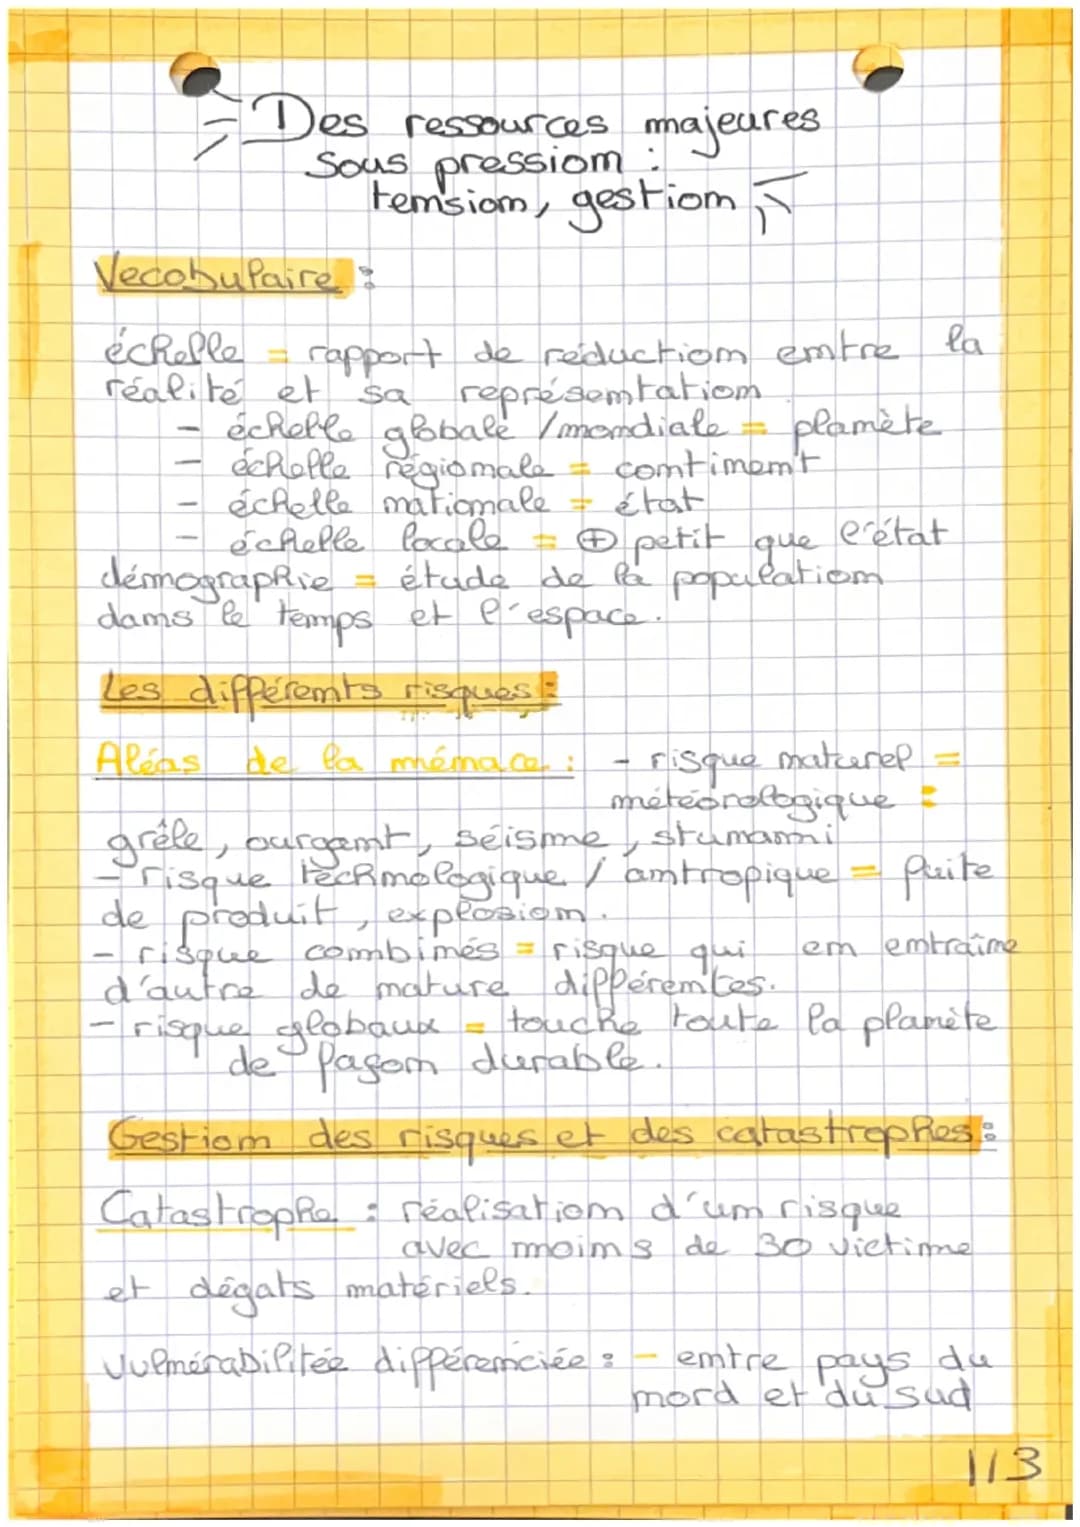 Des ressources majeures
sous pression :
tension, gestion
Vecobulaire :
échelle = rapport de réduction entre la
réalité et sa représentation
- échelle globale / mondiale = planète
- échelle régionale = continent
- échelle nationale = état
- échelle locale = ⊕ petit que l'état
démographie = étude de la population
dans le temps et l'espace.
Les différents risques :
Aléas de la ménace : - risque naturel =
météorologique :
grêle, ourgant, séisme, stunami
- risque technologique / antropique = fuite
de produit, explosion.
- risque combinés = risque qui en entraîne
d'autre de nature différentes.
- risque globaux = touche toute la planète
de façon durable.
Gestion des risques et des catastrophes :
Catastrophe : réalisation d'un risque
avec moins de 30 victime
et dégats matériels.
Vulnérabilitée différenciée : - entre pays du
nord et du sud
1/3